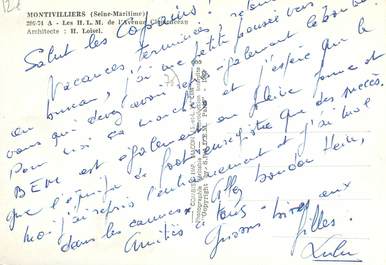 MONTIVILLIERS (Seine-Maritime)
286-74 A - Les H. L. M. de l'Avenue Clemenceau
Architecte : H. Loisel.
Salut les Copains !
Vacances terminées, retour
au bureau, j'ai une petite pensée vers
vous qui devez avoir repris également le boulot
Pour moi ça marche et j'espère que le
BEM est également en pleine forme et
que l'équipe de foot n'enregistre que des succès.
Moi j'ai repris l'entraînement et j'ai mal
dans les cannes. Allez bonsoir Hein,
Amitiés à tous - bises aux
filles.
Lulu